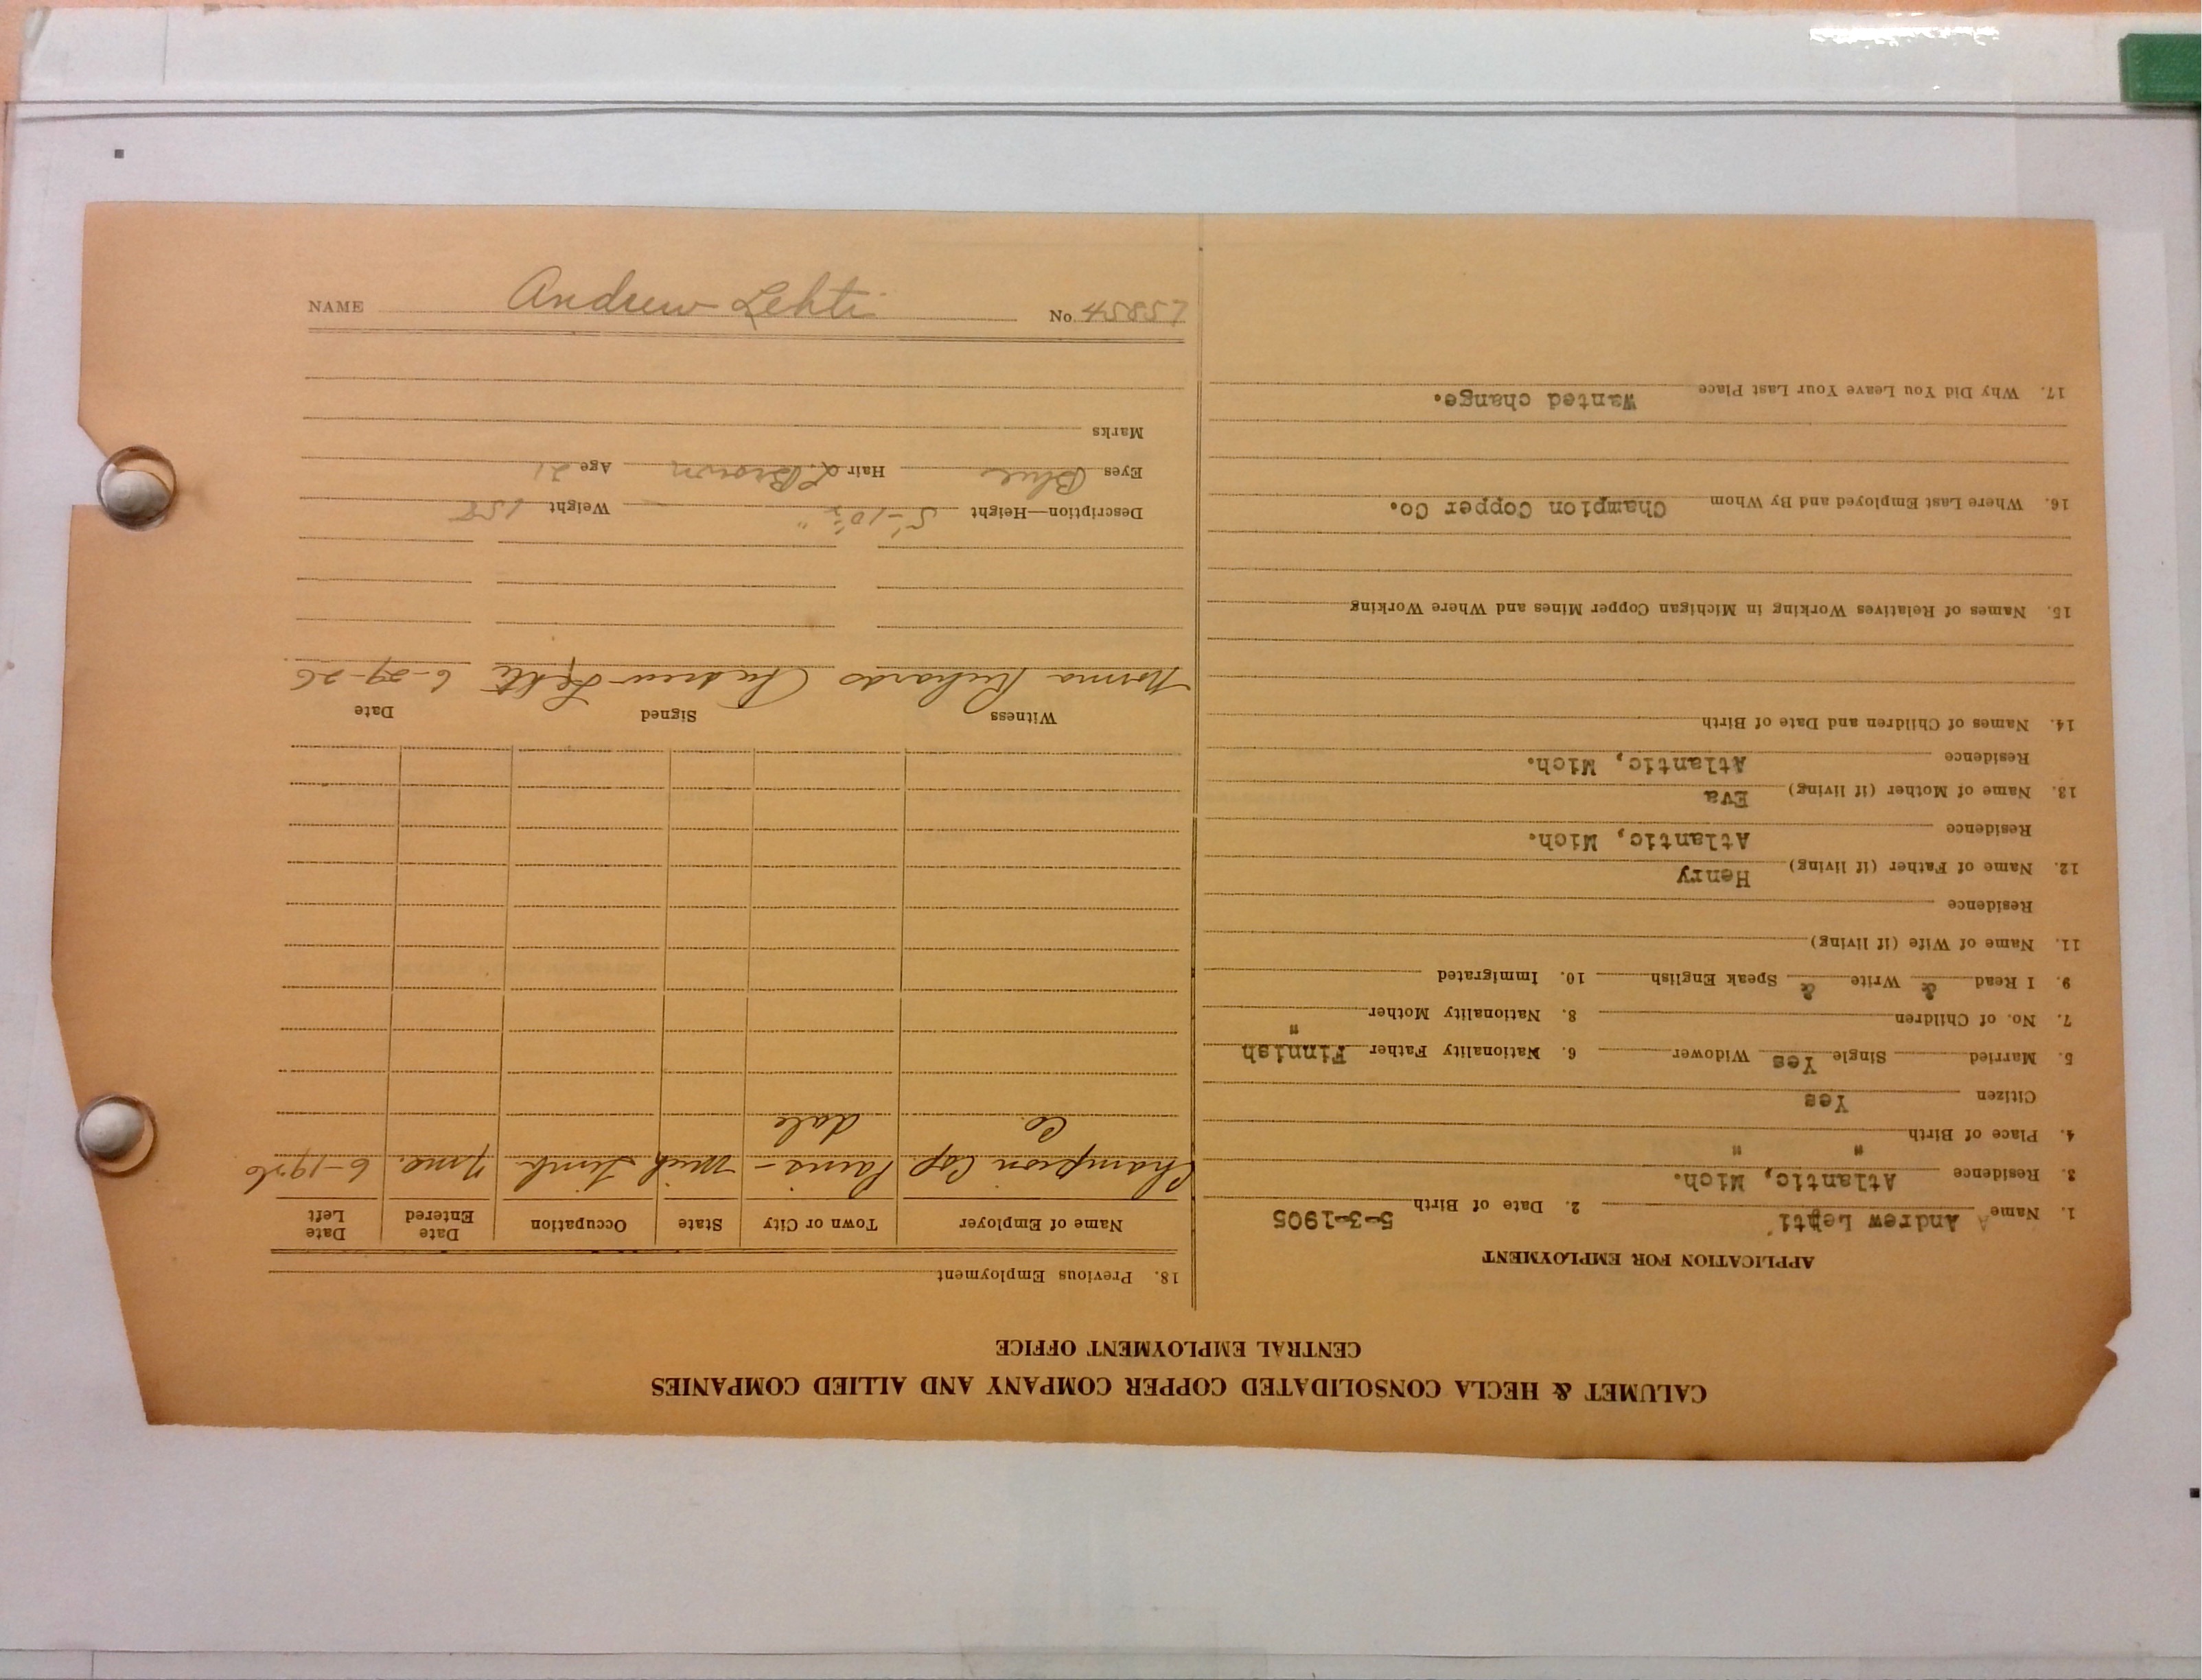 NAME Andrew Lehti No. 45857
CALUMET & HECLA CONSOLIDATED COPPER COMPANY AND ALLIED COMPANIES
CENTRAL EMPLOYMENT OFFICE
APPLICATION FOR EMPLOYMENT
1. Name Andrew Lehti 2. Date of Birth 5-3-1905
3. Residence Atlantic, Mich.
4. Place of Birth " "
Citizen Yes
5. Married Single Yes Widower 6. Nationality Father Finnish
7. No. of Children 8. Nationality Mother "
9. I Read & Write & Speak English 10. Immigrated
11. Name of Wife (if living)
Residence
12. Name of Father (if living) Henry
Residence Atlantic, Mich.
13. Name of Mother (if living) Eva
Residence Atlantic, Mich.
14. Names of Children and Date of Birth
15. Names of Relatives Working in Michigan Copper Mines and Where Working
16. Where Last Employed and By Whom Champion Copper Co.
17. Why Did You Leave Your Last Place Wanted change.
18. Previous Employment
Name of Employer Town or City State Occupation Date Entered Date Left
Champion Cop. Co. Pains-dale Mich 7 mo. 6-19-26
Witness Signed Date
Norma Richards Andrew Lehti 6-29-26
Description—Height 5'-10½" Weight 158
Eyes Blue Hair L. Brown Age 21
Marks